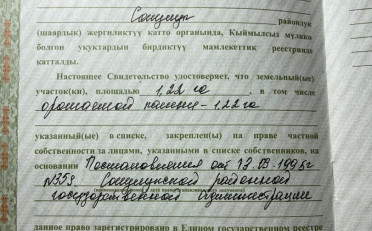 Сокулук райондук
(шаардык) жергиликтүү катто органында, Кыймылсыз мүлккө
болгон укуктардын бирдиктүү мамлекеттик реестринде
катталды.
Настоящее Свидетельство удостоверяет, что земельный(ые)
участок(ки), площадью 1,22 га, в том числе
орошаемой пашни - 1,22 га
указанный(ые) в списке, закреплен(ы) на праве частной
собственности за лицами, указанными в списке собственников, на
основании Постановления от 13 03-1995г
N353 Сокулукской районной
государственной администрации
данное право зарегистрировано в Едином государственном реестре